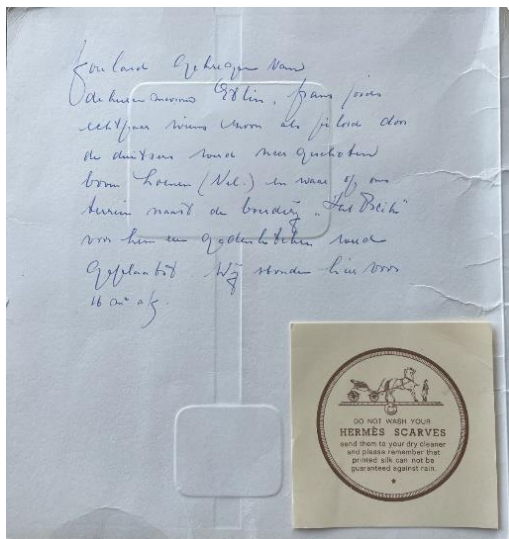 foulard gekregen van
de heer en mevrouw Etlin, frans joods
echtpaar wiens zoon als piloot door
de duitsers werd neer geschoten
boven Loenen (Vel.) en waar op ons
terrein naast de boerderij "Het
voor hem een gedenkteken werd
geplaatst Wij stonden hier voor
16 m² af.
DO NOT WASH YOUR
HERMÈS SCARVES
send them to your dry cleaner
and please remember that
printed silk can not be
guaranteed against rain.